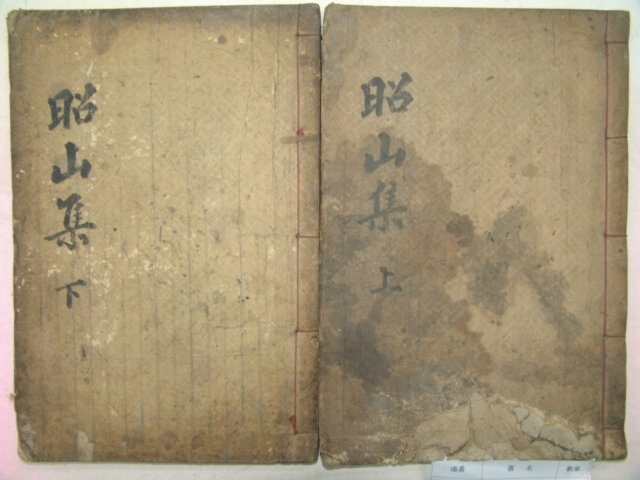 昭山集
上
昭山集
下
書名